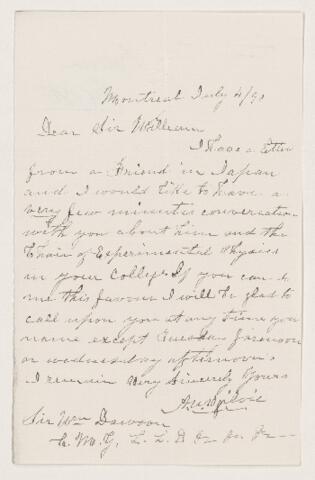 Montreal July 4/90
Dear Sir William
I have a letter
from a Friend in Japan
and I would like to have a
very few minutes conversation
with you about him and the
Chair of Experimental Physics
in your College If you can
me this favour I will be glad to
call upon you at any time you
name except Tuesday forenoon
or wednesday afternoon
I remain Very Sincerely Yours
Sir Wm Dawson
C. M. G, L. L. D